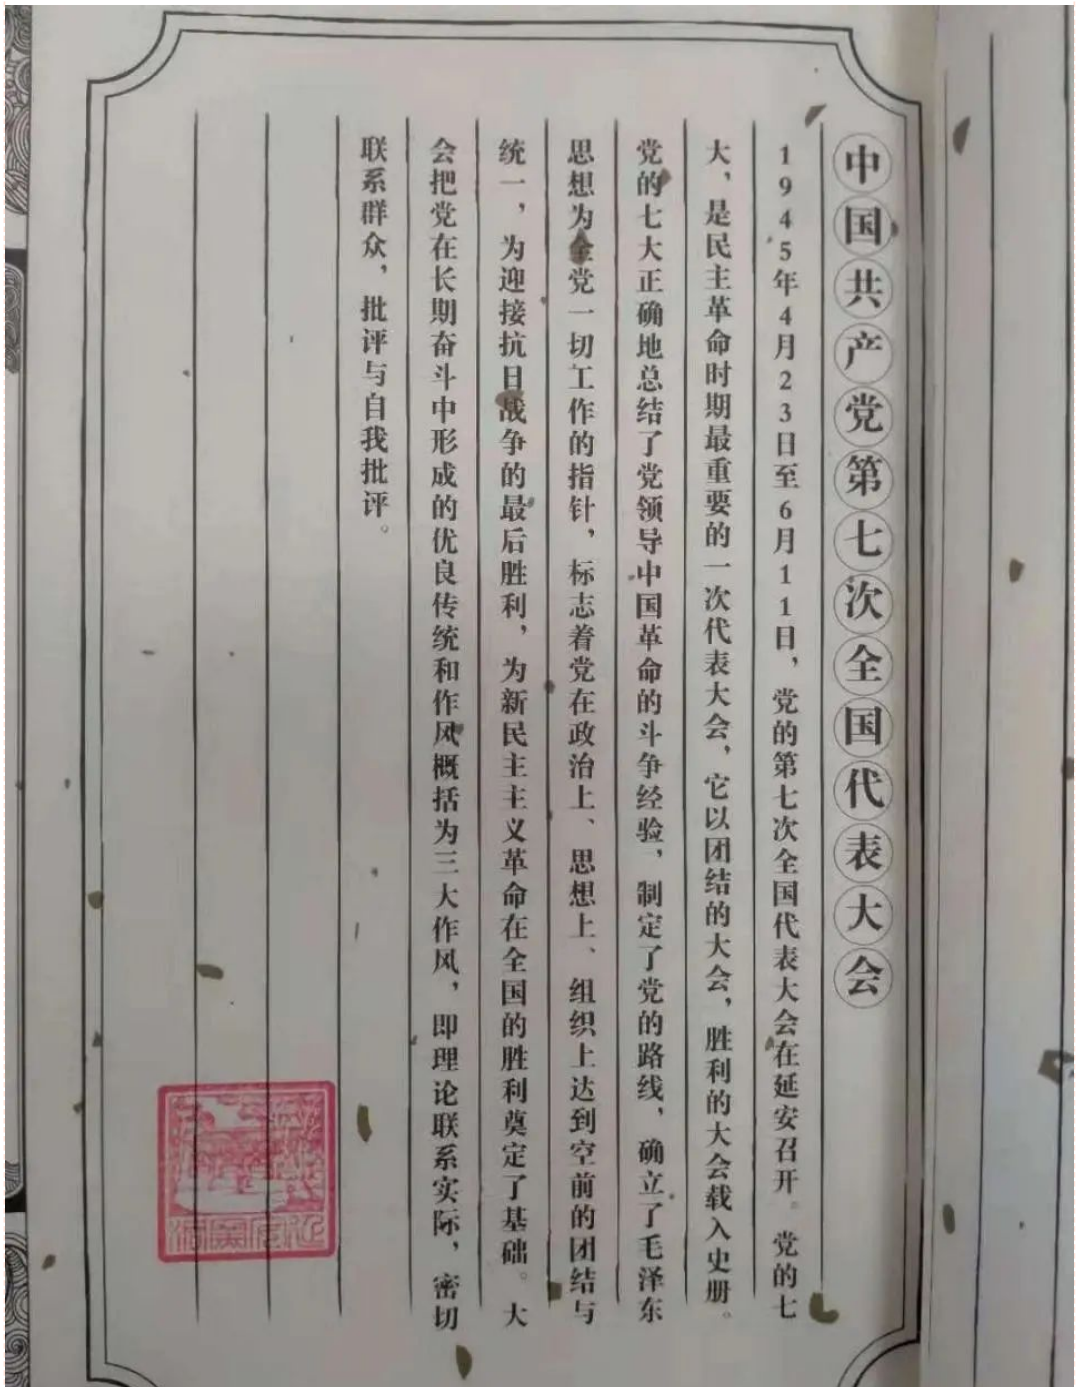 中国共产党第七次全国代表大会
1945年4月23日至6月11日，党的第七次全国代表大会在延安召开。党的七
大，是民主革命时期最重要的一次代表大会，它以团结的大会，胜利的大会载入史册。
党的七大正确地总结了党领导中国革命的斗争经验，制定了党的路线，确立了毛泽东
思想为全党一切工作的指针，标志着党在政治上、思想上、组织上达到空前的团结与
统一，为迎接抗日战争的最后胜利，为新民主主义革命在全国的胜利奠定了基础。大
会把党在长期奋斗中形成的优良传统和作风概括为三大作风，即理论联系实际，密切
联系群众，批评与自我批评。